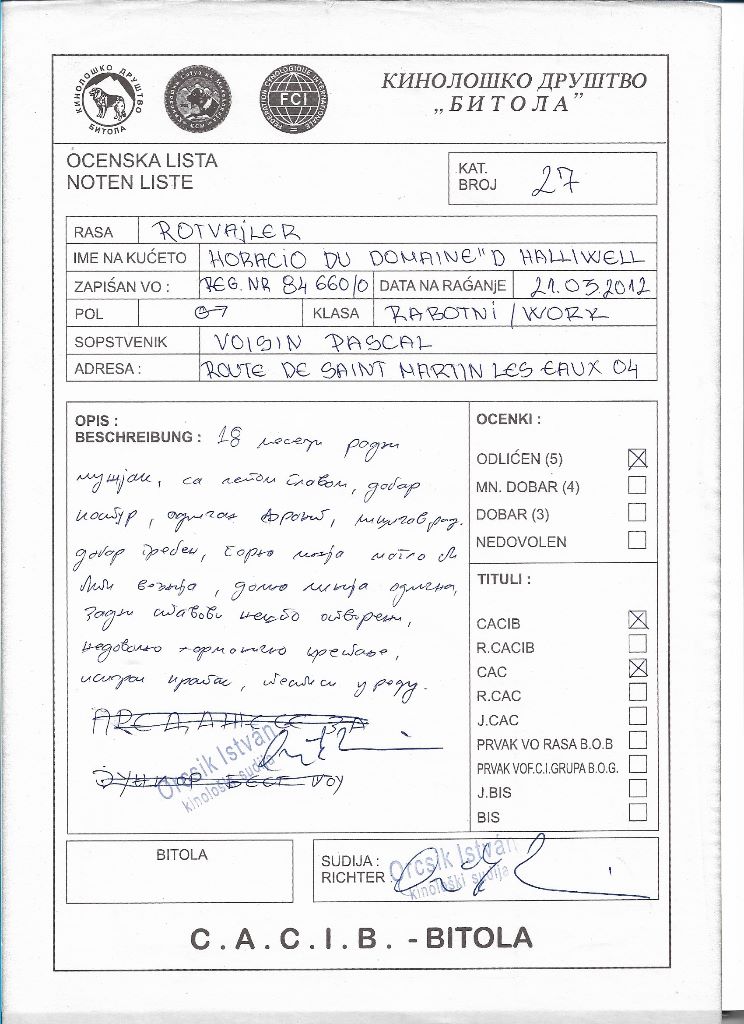 КИНОЛОШКО ДРУШТВО
БИТОЛА
FCI
КИНОЛОШКО ДРУШТВО
„БИТОЛА”
OCENSKA LISTA
NOTEN LISTE
KAT.
BROJ 27
RASA ROTVAJLER
IME NA KUĆETO HORACIO DU DOMAINE"D HALLIWELL
ZAPIŠAN VO : REG.NR 84660/0 DATA NA RAĠANjE 21.03.2012
POL KLASA RABOTNI / WORK
SOPSTVENIK VOISIN PASCAL
ADRESA : ROUTE DE SAINT MARTIN LES EAUX 04
OPIS :
BESCHREIBUNG : 18 месеци
мужјак, са лепом главом, добар
одличан
добар гребен, горњо линија могло би
бити, доњо линија одлична,
задњи ставови отворени,
недовољно хармонично кретање,
у реду.
Orcsik István
kinološki sudija
OCENKI :
ODLIĆEN (5)
MN. DOBAR (4)
DOBAR (3)
NEDOVOLEN
TITULI :
CACIB
R.CACIB
CAC
R.CAC
J.CAC
PRVAK VO RASA B.O.B
PRVAK VOF.C.I.GRUPA B.O.G.
J.BIS
BIS
BITOLA
SUDIJA :
RICHTER :
Orcsik István
kinološki sudija
C.A.C.I.B. - BITOLA